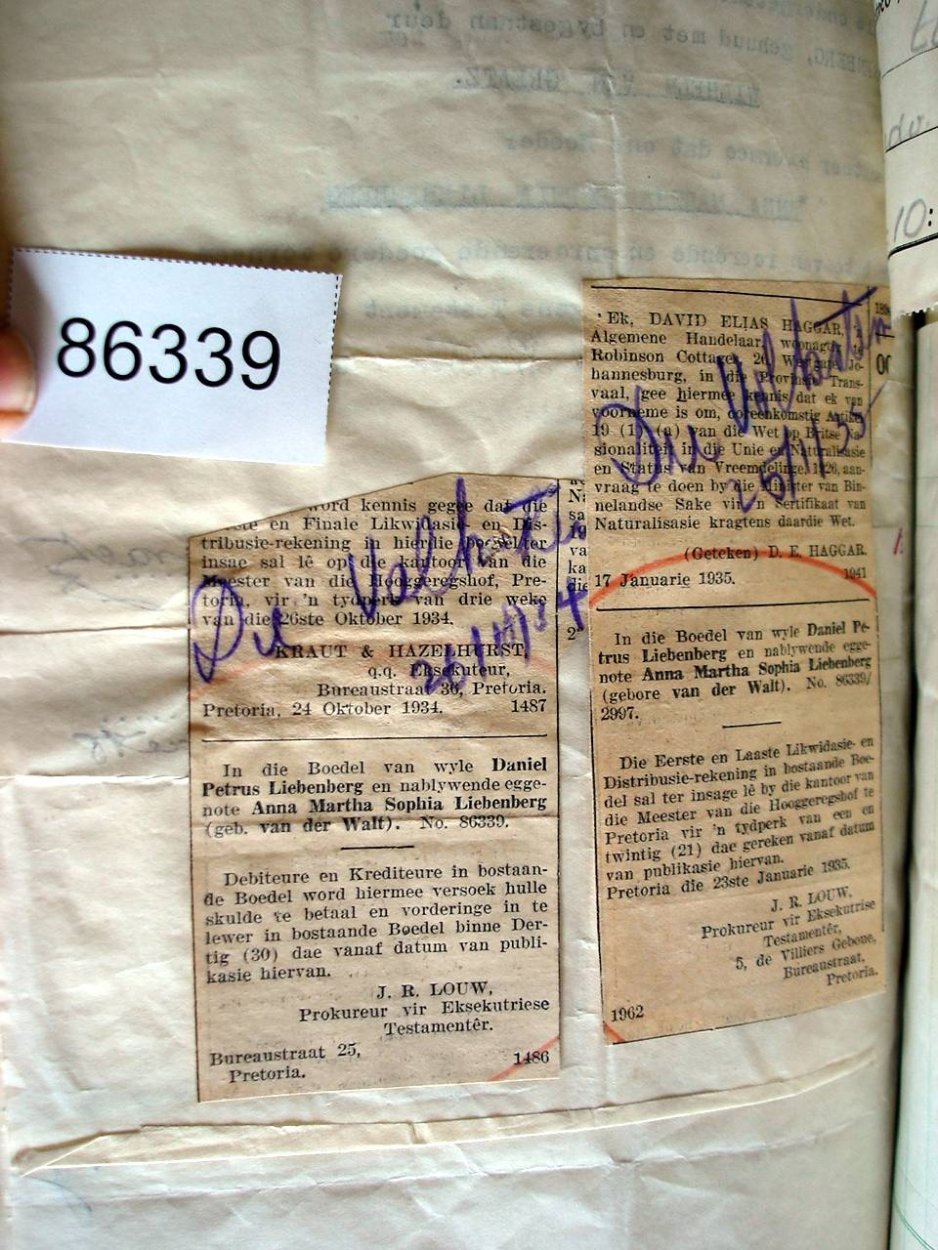 86339
word kennis gegee dat die
en Finale Likwidasie- en Dis-
tribusie-rekening in hierdie boedel ter
insae sal lê op die kantoor van die
Meester van die Hooggeregshof, Pre-
toria, vir 'n tydperk van drie weke
van die 26ste Oktober 1934.
KRAUT & HAZELHURST,
q.q. Eksekuteur,
Bureaustraat 36, Pretoria.
Pretoria, 24 Oktober 1934. 1487
Die Volkstem
26/10/34
In die Boedel van wyle Daniel
Petrus Liebenberg en nablywende egge-
note Anna Martha Sophia Liebenberg
(geb. van der Walt). No. 86339.
Debiteure en Krediteure in bostaan-
de Boedel word hiermee versoek hulle
skulde te betaal en vorderinge in te
lewer in bostaande Boedel binne Der-
tig (30) dae vanaf datum van publi-
kasie hiervan.
J. R. LOUW,
Prokureur vir Eksekutriese
Testamentêr.
Bureaustraat 25, 1486
Pretoria.
Ek, DAVID ELIAS HAGGAR,
Algemene Handelaar, woonagtig
Robinson Cottages, 26 Jo-
hannesburg, in die Provinsie Trans-
vaal, gee hiermee kennis dat ek van
voorneme is om, ooreenkomstig Artikel
19 (1) (a) van die Wet op Britse
sionaliteit in die Unie en Naturalisasie
en Status van Vreemdelinge, 1926, aan-
vraag te doen by die Minister van Bin-
nelandse Sake vir 'n Sertifikaat van
Naturalisasie kragtens daardie Wet.
(Geteken) D. E. HAGGAR.
17 Januarie 1935. 1941
Die Volkstem
26/1/35
In die Boedel van wyle Daniel Pe-
trus Liebenberg en nablywende egge-
note Anna Martha Sophia Liebenberg
(gebore van der Walt). No. 86339/
2997.
Die Eerste en Laaste Likwidasie- en
Distribusie-rekening in bostaande Boe-
del sal ter insage lê by die kantoor van
die Meester van die Hooggeregshof te
Pretoria vir 'n tydperk van een en
twintig (21) dae gereken vanaf datum
van publikasie hiervan.
Pretoria die 23ste Januarie 1935.
J. R. LOUW,
Prokureur vir Eksekutrise
Testamentêr,
5, de Villiers Gebone,
Bureaustraat,
Pretoria.
1962